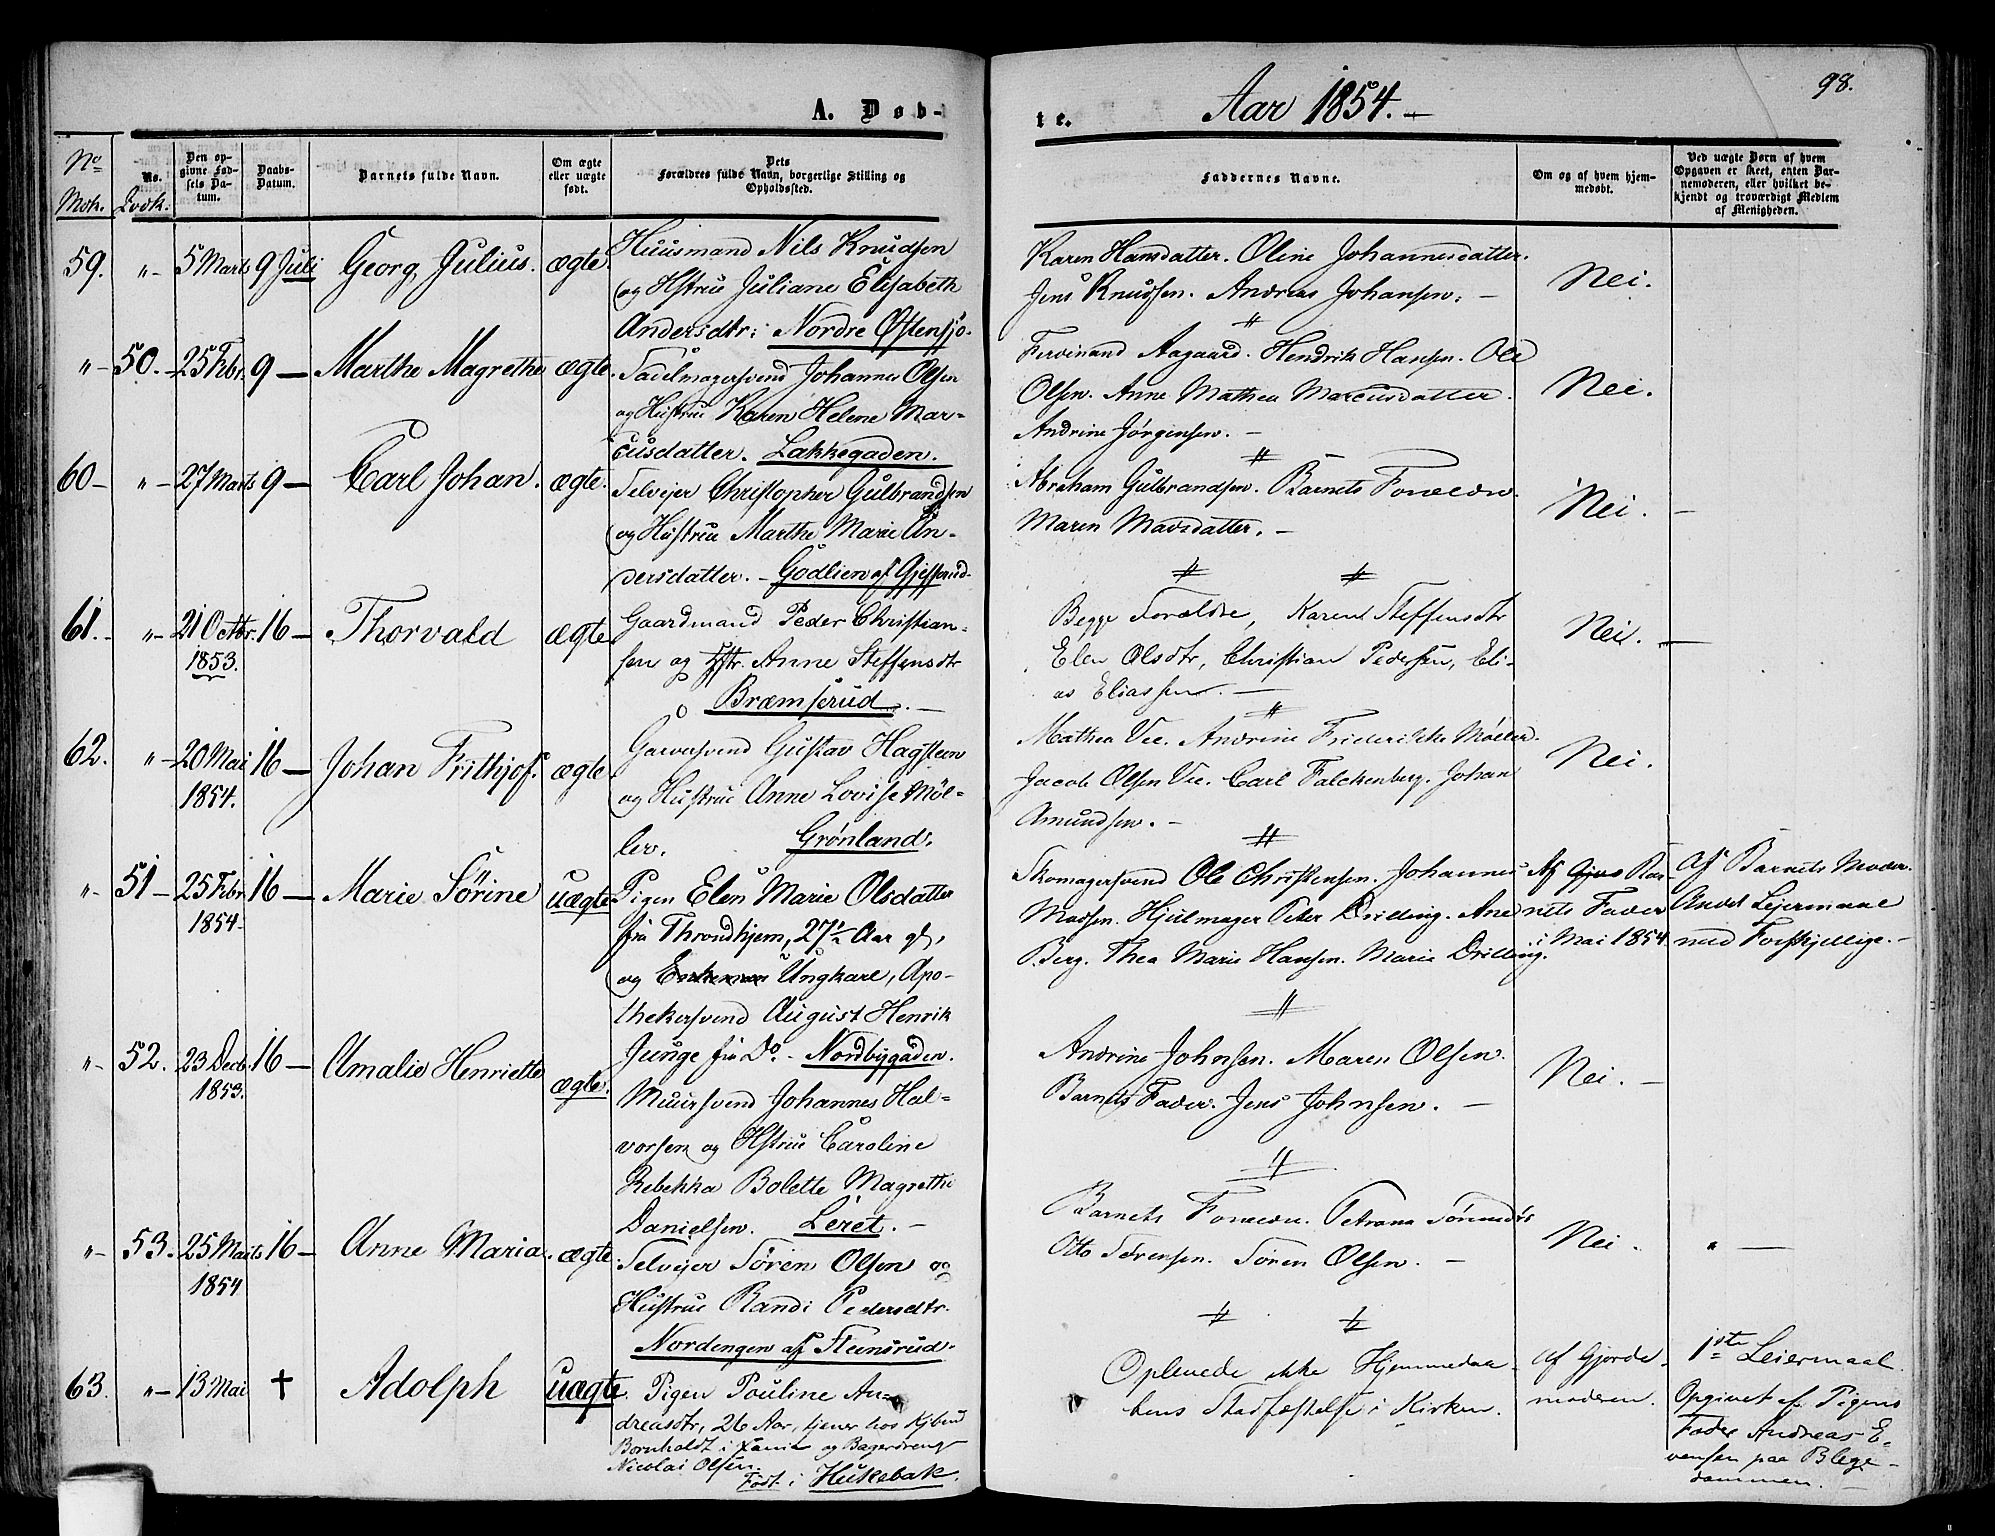 98.
A. Døb-
te. Aar 1854.-
No Mdk.
No. Qvdk.
Den opgivne Fødsels Datum.
Daabs-Datum.
Barnets fulde Navn.
Om ægte eller uægte født.
Dets Forældres fulde Navn, borgerlige Stilling og Opholdssted.
Faddernes Navne.
Om og af hvem hjemmedøbt.
Ved uægte Børn af hvem Opgaven er skeet, enten Barnemoderen, eller hvilket bekjendt og troværdigt Medlem af Menigheden.
59. „- 5 Marts 9 Juli Georg Julius. ægte.
Huusmand Nils Knudsen
og Hstru Juliane Elisabeth
Andersdtr: Nordre Østensjo.
Karen Hansdatter. Oline Johannesdatter.
Jens Knudsen. Andreas Johansen. -
Nei.
„- 50. 25 Febr. 9 - Marthe Magrethe ægte.
Sadelmagersvend Johannes Olsen
og Hustru Karen Helene Mar-
cusdatter. Lakkegaden.
Ferdinand Aagaard. Hendrik Hansen. Ole
Olsen. Anne Mathea Marcusdatter.
Andrine Jørgensen. -
Nei.
60- „- 27 Marts 9 - Carl Johan. ægte.
Selveier Christopher Gulbrandsen
og Hustru Marthe Marie An-
dersdatter. - Godlien af
Abraham Gulbrandsen. Barnets Forældre.
Maren Madsdatter. -
Nei. -
61. - „- 21 Octbr. 1853. 16 - Thorvald ægte
Gaardmand Peder Christian-
sen og Hstr. Anne Steffensdtr
Bræmserud. -
Begge Forældre, Karen Steffensdtr
Elen Olsdtr, Christian Pedersen, Eli-
as Eliassen. -
Nei. -
62. „- 20 Mai 1854. 16 - Johan Frithjof. ægte
Garversvend Gustav Hagsteen
og Hustrue Anne Lovise Møl-
ler. Grønland.
Mathea Vee. Andrine Friderikke Møller.
Jacob Olsen Vee. Carl Falckenberg. Johan
Amundsen. -
Nei.
„- 51 - 25 Febr 1854. 16 - Marie Sørine uægte
Pigen Elen Marie Olsdatter
fra Throndhjem, 27½ Aar gl,
og Ungkarl, Apo-
thekersvend August Henrik
Junge fra Do. - Nordbygaden.
Skomagersvend Ole Christensen. Johannes
Madsen. Hjulmager Peter Drilling. Ane
Berg. Thea Marie Hansen. Marie Drilling.
Af Bar-
nets Fader
i Mai 1854.
Af Barnets Moder.
Andet Lejermaal
med Forskjellige. -
„- 52. 23 Decb. 1853. 16 - Amalie Henriette ægte.
Muursvend Johannes Hal-
vorsen og Hstrue Caroline
Rebekka Bolette Magrethe
Danielsen. Leret. -
Andrine Johnsen. Maren Olsen.
Barnets Fader. Jens Johnsen. -
Nei. -
„- 53. 25 Marts 1854 16 - Anne Maria. ægte
Selveier Søren Olsen og
Hustrue Randi Pedersdtr.
Nordengen af Steensrud.
Barnets Forældre. Petrana Sørensdtr
Otto Sørensen. Søren Olsen. -
Nei. „ -
63. „- 13 Mai † Adolph uægte.
Pigen Pouline An-
dreasdtr, 26 Aar, tjener hos Kjbmd
Bornholdt i og Bagerdreng
Nicolai Olsen.
Født i Hukebak.
Oplevede ikke Hjemmedaa-
bens Stadfæstelse i Kirken.
af Gjorde-
moderen.
1ste Leiermaal.
Opgivet af Pigens
Fader Andreas E-
vensen paa Blege-
dammen. -